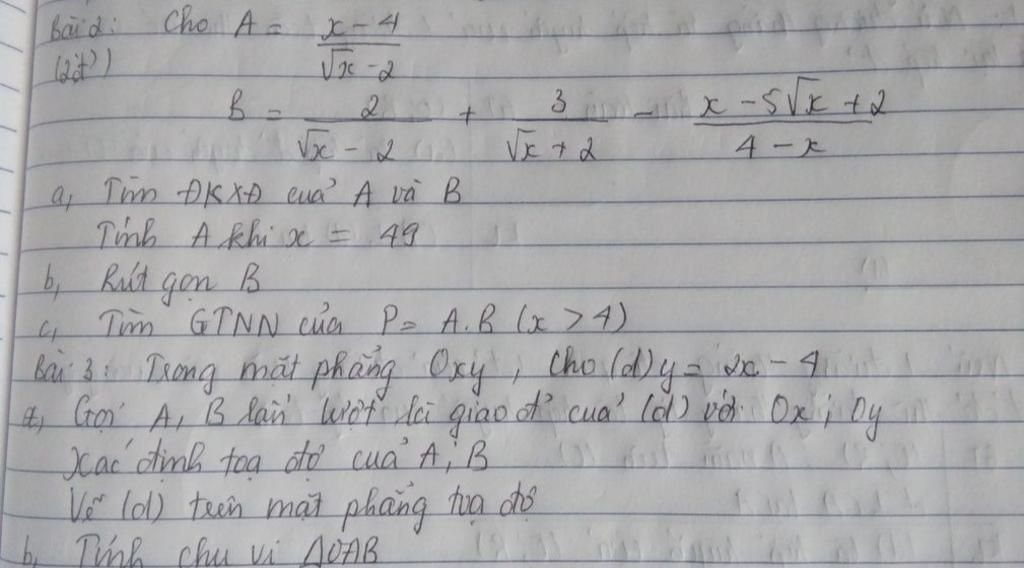 Bài 2: Cho A = x - 4 / √x - 2
(2đ)
B = 2 / √x - 2 + 3 / √x + 2 - x - 5√x + 2 / 4 - x
a, Tìm ĐKXĐ của A và B
Tính A khi x = 49
b, Rút gọn B
c, Tìm GTNN của P = A.B (x > 4)
Bài 3: Trong mặt phẳng Oxy, cho (d) y = 2x - 4
a, Gọi A, B lần lượt là giao đ' của (d) với Ox; Oy
Xác định toạ độ của A; B
Vẽ (d) trên mặt phẳng toạ độ
b, Tính chu vi ΔOAB